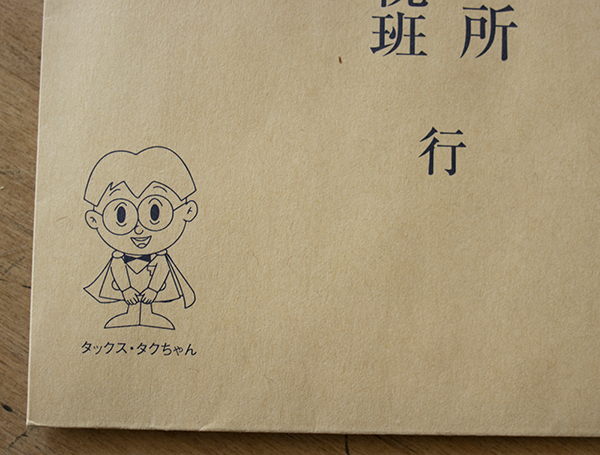 所
班
行
タックス・タクちゃん